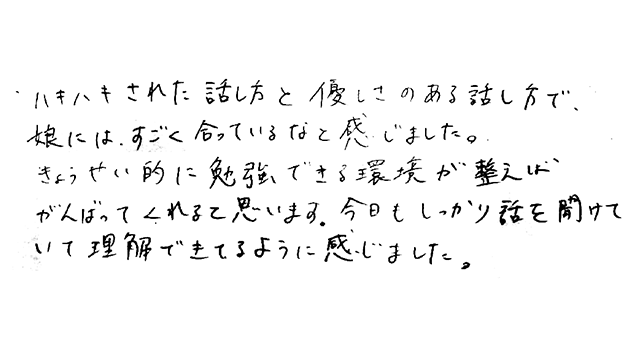 ・ハキハキされた話し方と優しさのある話し方で、
娘には、すごく合っているなと感じました。
きょうせい的に勉強できる環境が整えば
がんばってくれると思います。今日もしっかり話を聞けて
いて理解できてるように感じました。